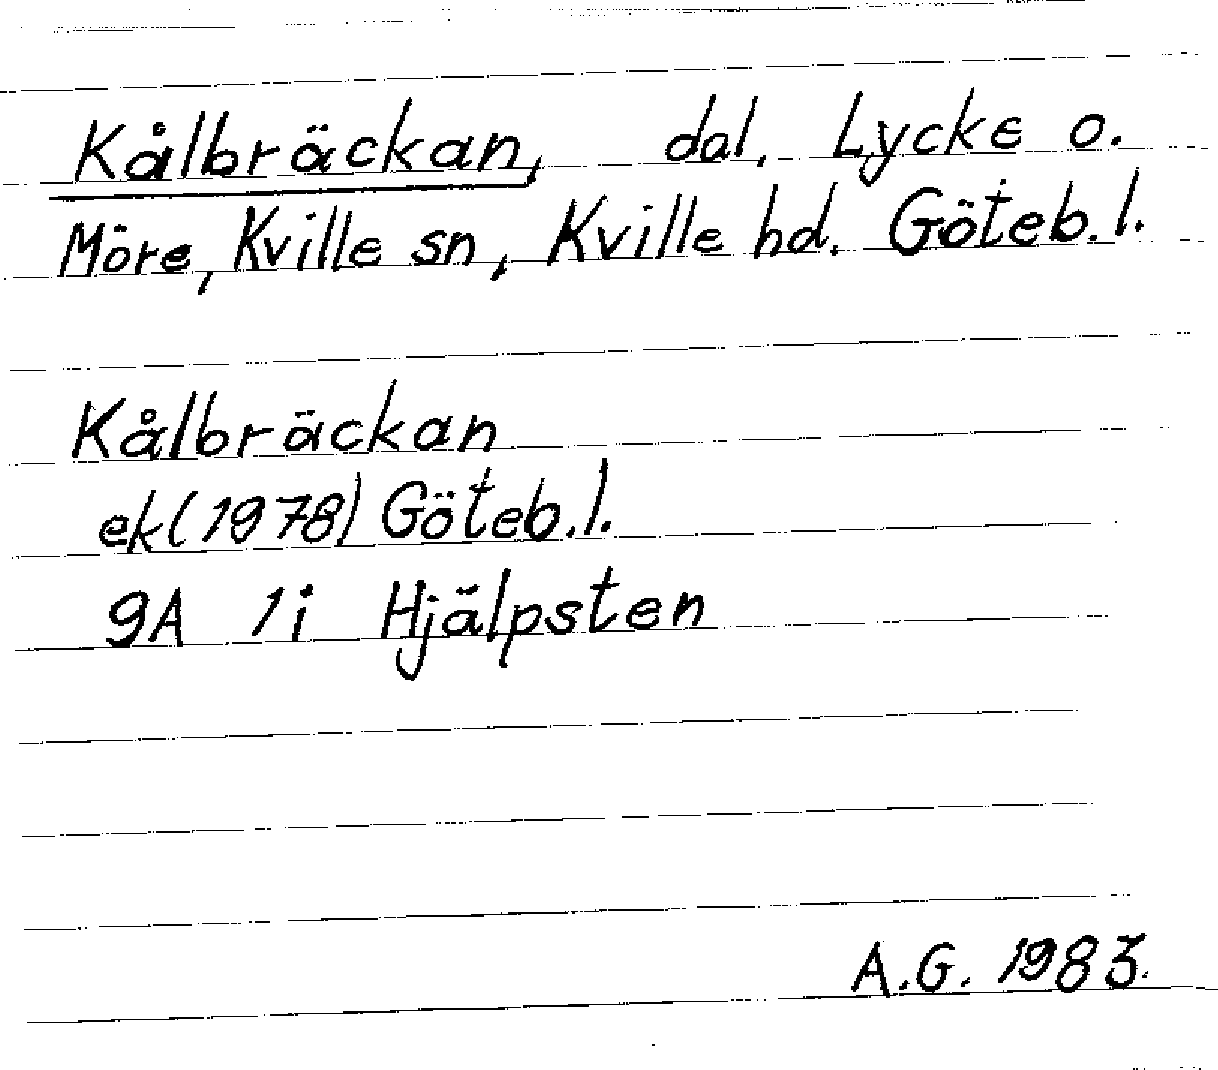 Kålbräckan, dal. Lycke o.
Möre, Kville sn, Kville hd. Göteb. l.
Kålbräckan
ek (1978) Göteb. l.
9A 1i Hjälpsten
A.G. 1983.